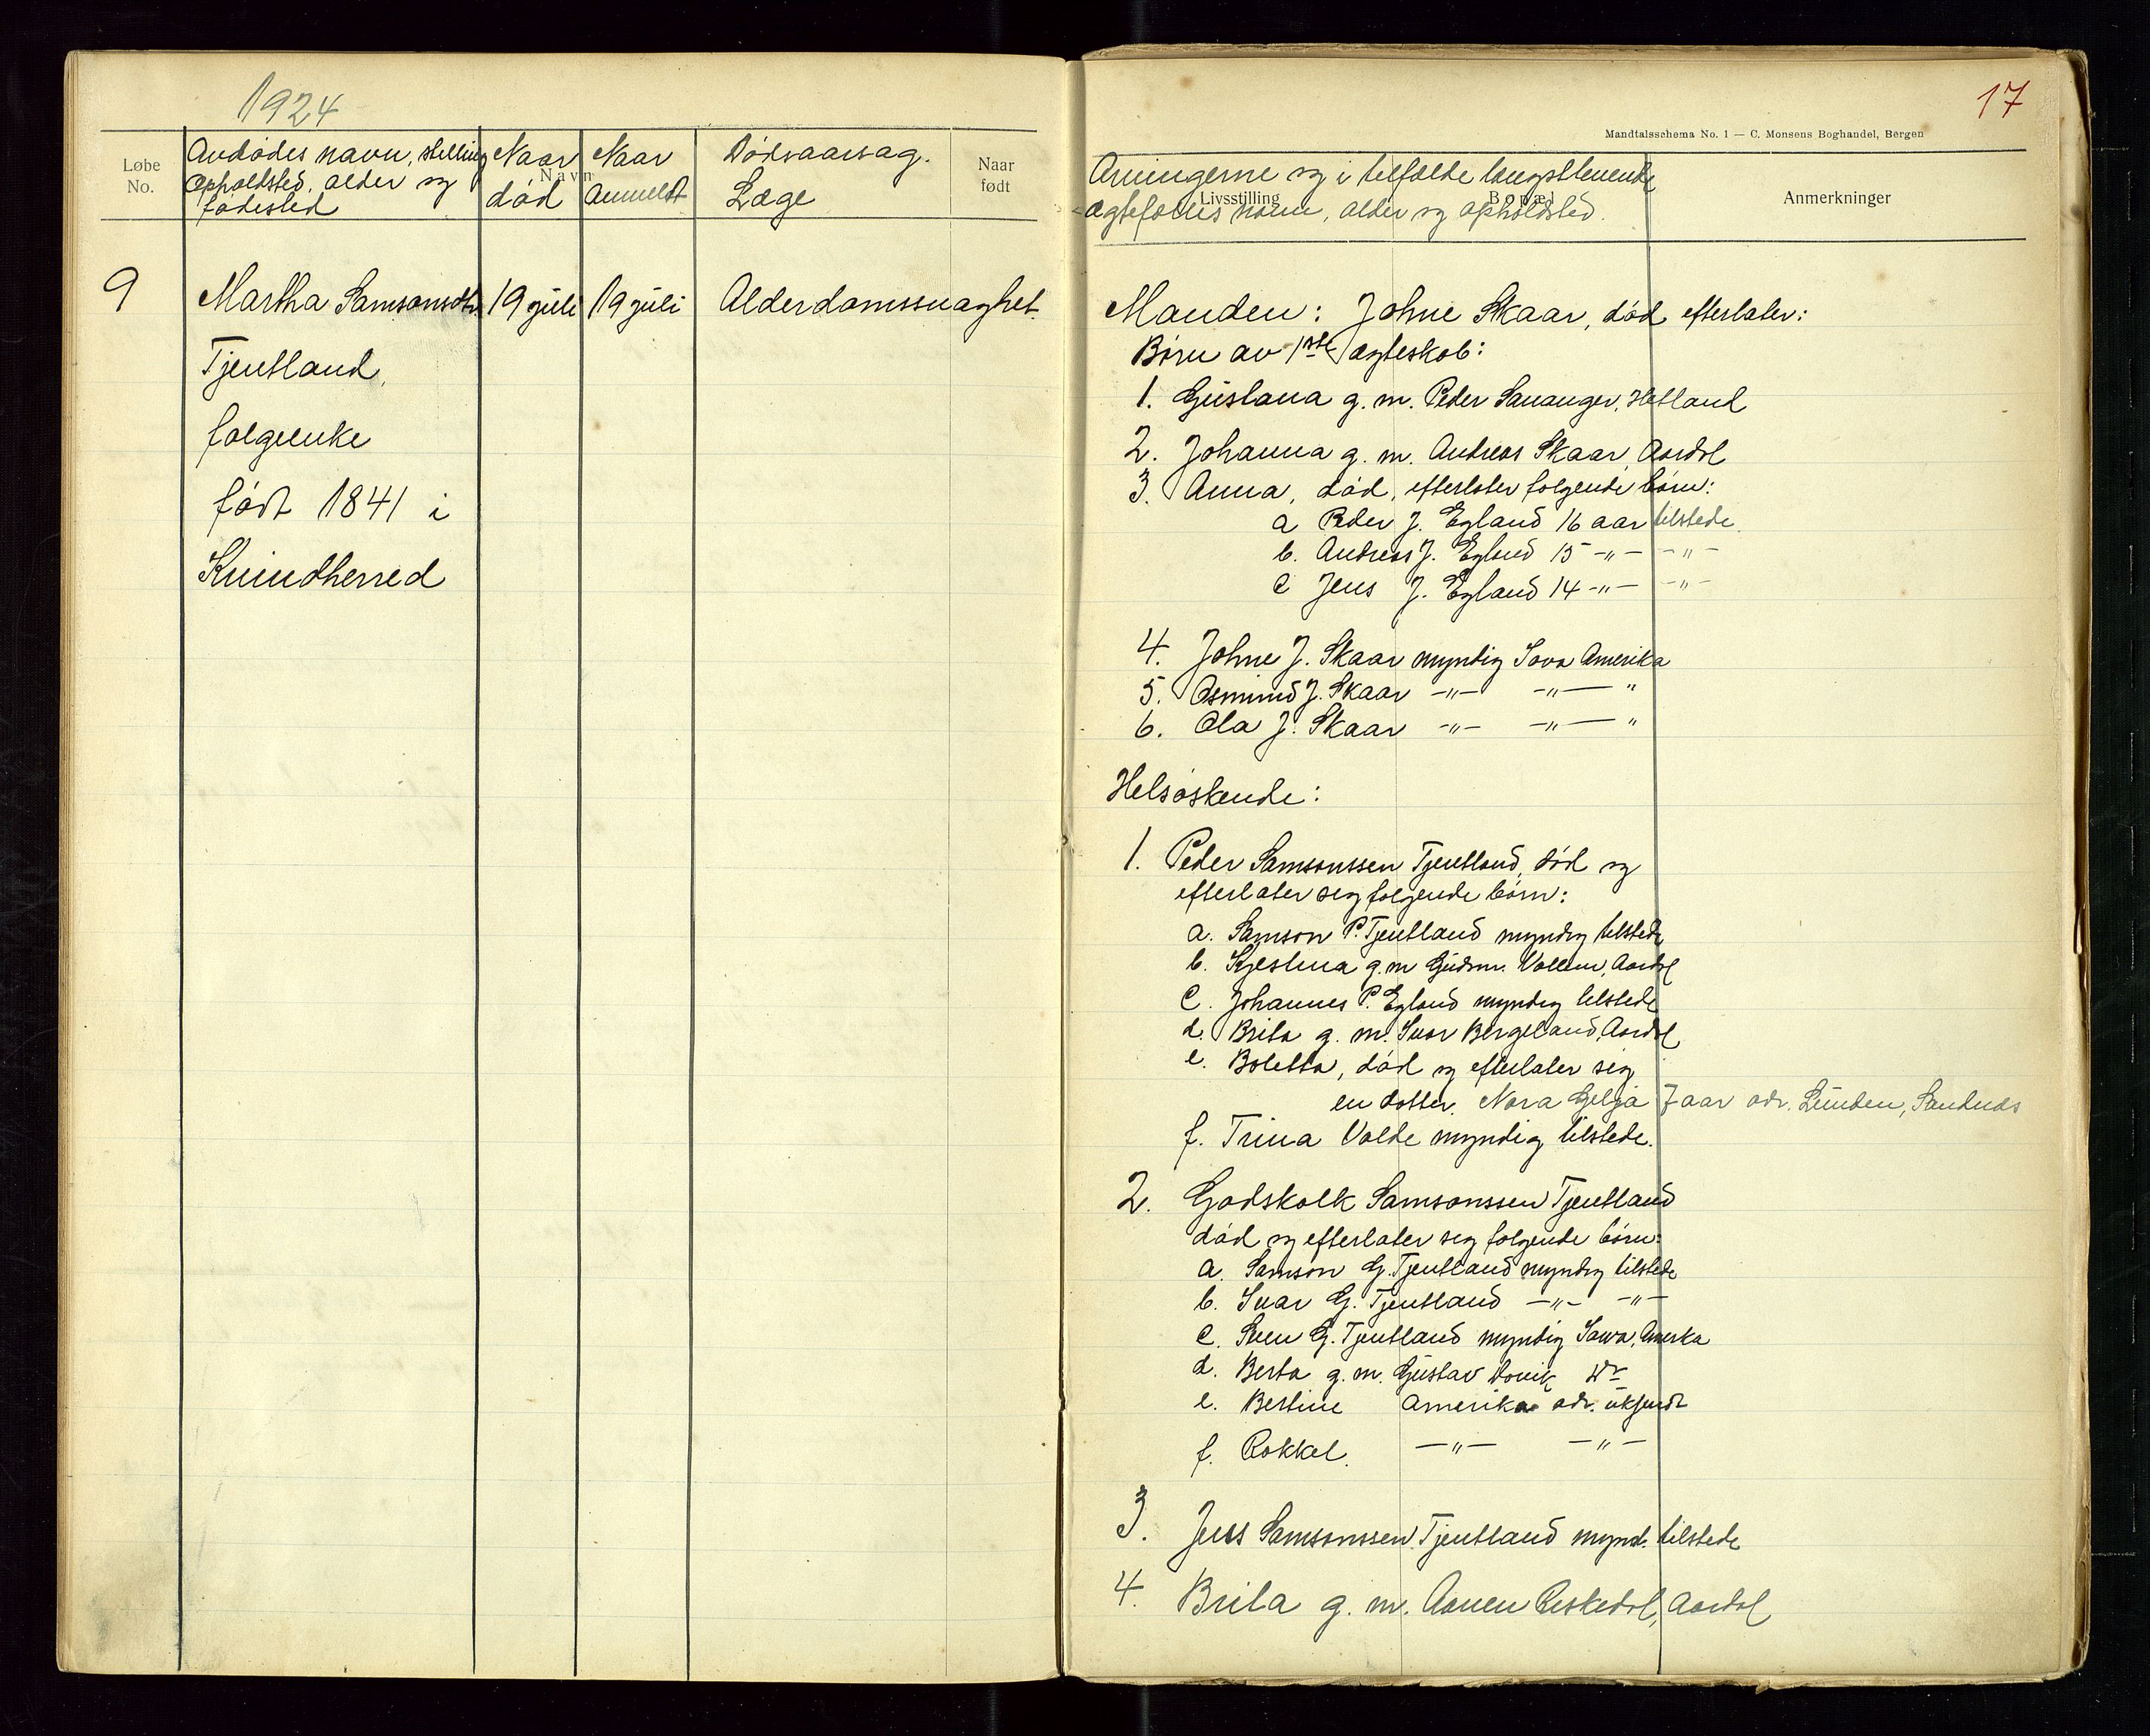 1924
Løbe No.
Avdødes navn, stilling
opholdsted, alder og
fødested
Naar død
Navn
Naar Anmeldt
Dødsaarsag.
Læge
Naar født
9
Martha Samsonsdtr
19 juli
19 juli
Alderdomssvaghet.
Tjentland,
folgeenke
født 1841 i
Kvindherred
17
Mandtalsschema No. 1 — C. Monsens Boghandel, Bergen
Arvingerne og i tilfælde længstlevende
Livsstilling
Bopæl
Anmerkninger
ægtefælles navn, alder og opholdsted.
Manden: Johne Skaar, død efterlater:
Børn av 1ste ægteskab:
1. Gustava g. m. Peder Sauanger, Hetland
2. Johanna g. m. Andreas Skaar, Aardal
3. Anna, død, efterlater følgende børn:
a Peder J. Egland 16 aar tilstede.
b. Andreas J. Egland 15 -"- -"-
c Jens J. Egland 14 -"- -"-
4. Johne J. Skaar myndig Iova Amerika
5. Asmund J. Skaar -"- -"- "
6. Ola J. Skaar -"- -"- "
Helsøskende:
1. Peder Samsonssen Tjentland, død og
efterlater seg følgende børn:
a. Samson P. Tjentland myndig tilstede
b. Kjestina g. m Gudm. Valleim, Aardal
c. Johannes P. Egland myndig tilstede
d. Brita g. m. Ivar Bergeland, Aardal
e. Boletta, død og efterlater sig
en dotter. Nora Gilja 7 aar adr. Lunden, Sandnes
f. Trina Valde myndig tilstede.
2. Godskalk Samsonssen Tjentland
død og efterlater seg følgende børn:
a. Samson G. Tjentland myndig tilstede
b. Ivar G. Tjentland -"- -"-
c. Sven G. Tjentland myndig Iowa, Amerka
d. Berta g. m. Gustav Høvik do
e. Bertine Amerika adr. ukjendt
f. Rakkel. -"- -"-
3. Jens Samsonssen Tjentland mynd. tilstede
4. Brita g. m. Aanen Riskedal, Aardal